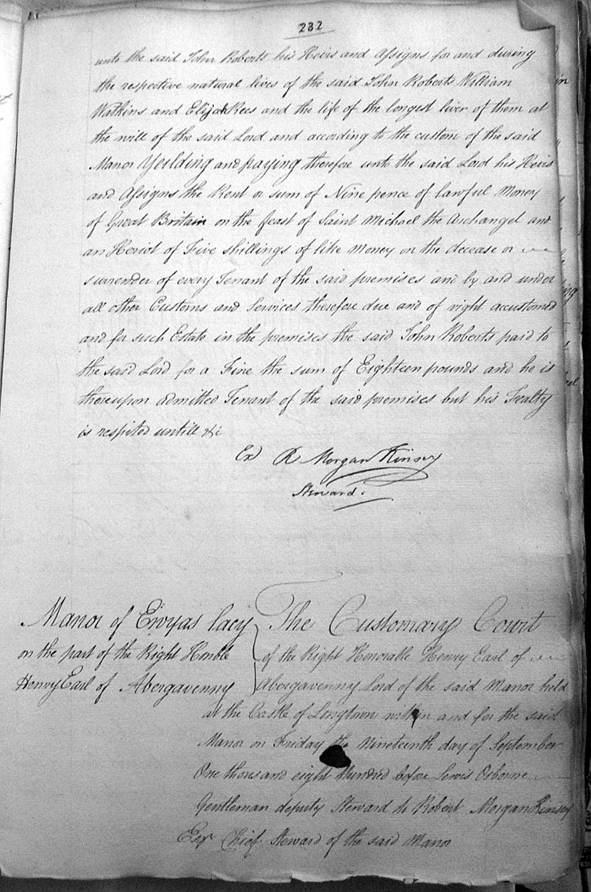 232
unto the said John Roberts his Heirs and Assigns for and during
the respective natural lives of the said John Roberts William
Watkins and Elijah Rees and the life of the longest liver of them at
the will of the said Lord and according to the custom of the said
Manor Yeilding and paying therefore unto the said Lord his Heirs
and Assigns the Rent or sum of Nine pence of lawful Money
of Great Britain on the feast of Saint Michael the Archangel and
an Heriot of Five shillings of like Money on the decease or
surrender of every Tenant of the said premises and by and under
all other Customs and Services therefore due and of right accustomed
and for such Estate in the premises the said John Roberts paid to
the said Lord for a Fine the sum of Eighteen pounds and he is
thereupon admitted Tenant of the said premises but his Fealty
is respited untill &c
Exd R Morgan Kinsey
Steward.
Manor of Ewyas lacy
on the part of the Right Honble
Henry Earl of Abergavenny
The Customary Court
of the Right Honorable Henry Earl of
Abergavenny Lord of the said Manor held
at the Castle of Longtown within and for the said
Manor on Friday the Nineteenth day of September
One thousand eight Hundred before Lewis Osborne
Gentleman deputy Steward to Robert Morgan Kinsey
Esqr Chief Steward of the said Manor